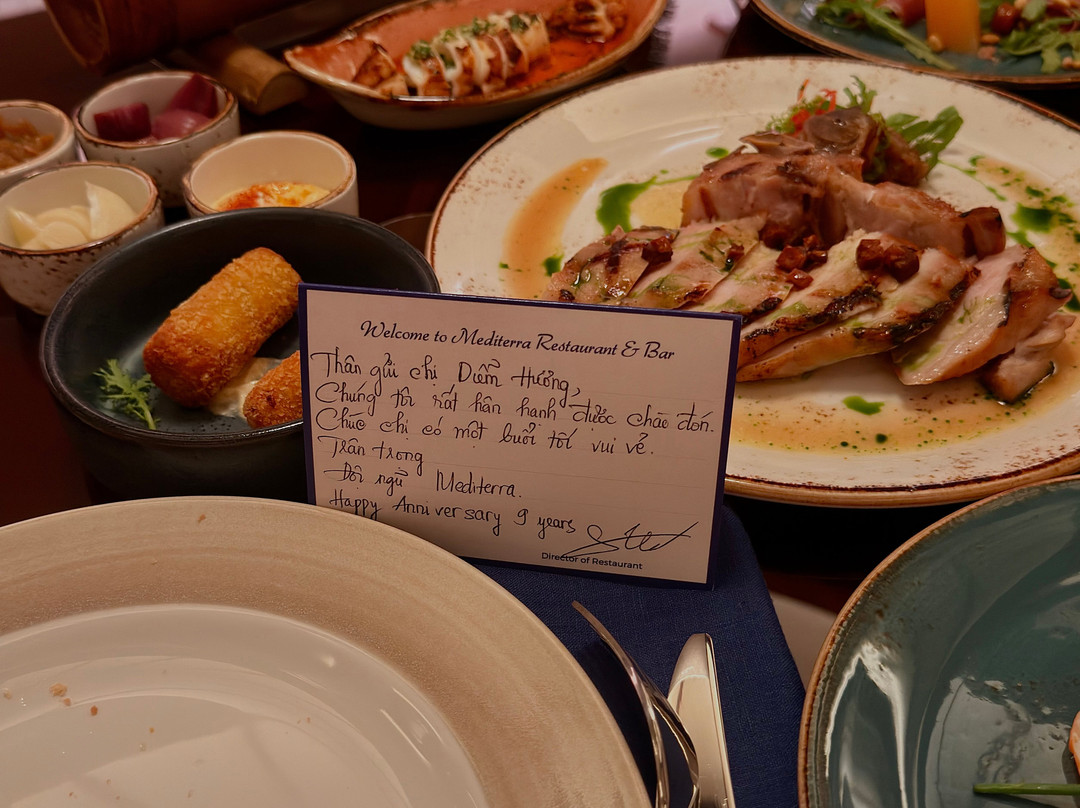 Welcome to Mediterra Restaurant & Bar
Thân gửi chị Diễm Hương,
Chúng tôi rất hân hạnh được chào đón.
Chúc chị có một buổi tối vui vẻ.
Trân trọng
Đội ngũ Mediterra.
Happy Anniversary 9 years
Director of Restaurant